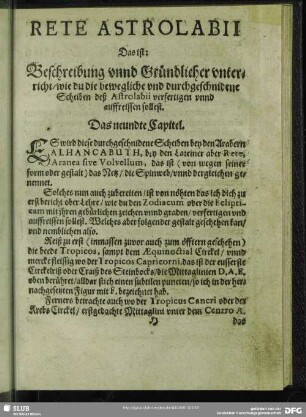 RETE ASTROLABII
Das ist:
Beschreibung vnnd Gründlicher vnter-
richt/wie du die bewegliche vnd durchgeschnidene
Scheiben deß Astrolabii verfertigen vnnd
auffreissen sollest.
Das neundte Capitel.
ES wird diese durchgeschnidene Scheiben bey den Arabern
ALHANCABUTH, bey den Lateiner aber Rete,
Aranea sive Volvellum, das ist (von wegen seiner
form oder gestalt) das Netz/ die Spinweb/vnnd dergleichen ge-
nennet.
Solches nun auch zubereiten/ ist von nöhten das ich dich zu
erst bericht oder Lehre/ wie du den Zodiacum oder die Eclipti-
cam mit jhren gebürlichen zeichen vnnd graden/ verfertigen vnd
auffreissen sollest. Welches aber folgender gestalt geschehen kan/
vnd nemblichen also.
Reiß zu erst (inmassen zuvor auch zum öfftern geschehen)
die beede Tropicos, sampt dem Æquinoctial Circkel/ vnnd
mercke fleissig wo der Tropicos Capricorni, das ist der eusserste
Circkelriß oder Craiß des Steinbocks/ die Mittaglinien D, A, E,
oben berühret/ alldar stich einen subtilen puncten/ so ich in der her-
nachgesetzten Figur mit F, bezeichnet hab.
Ferners betrachte auch wo der Tropicus Cancri oder des
Krebs Circkel/ erstgedachte Mittaglini vnter dem Centro A,
das
SLUB